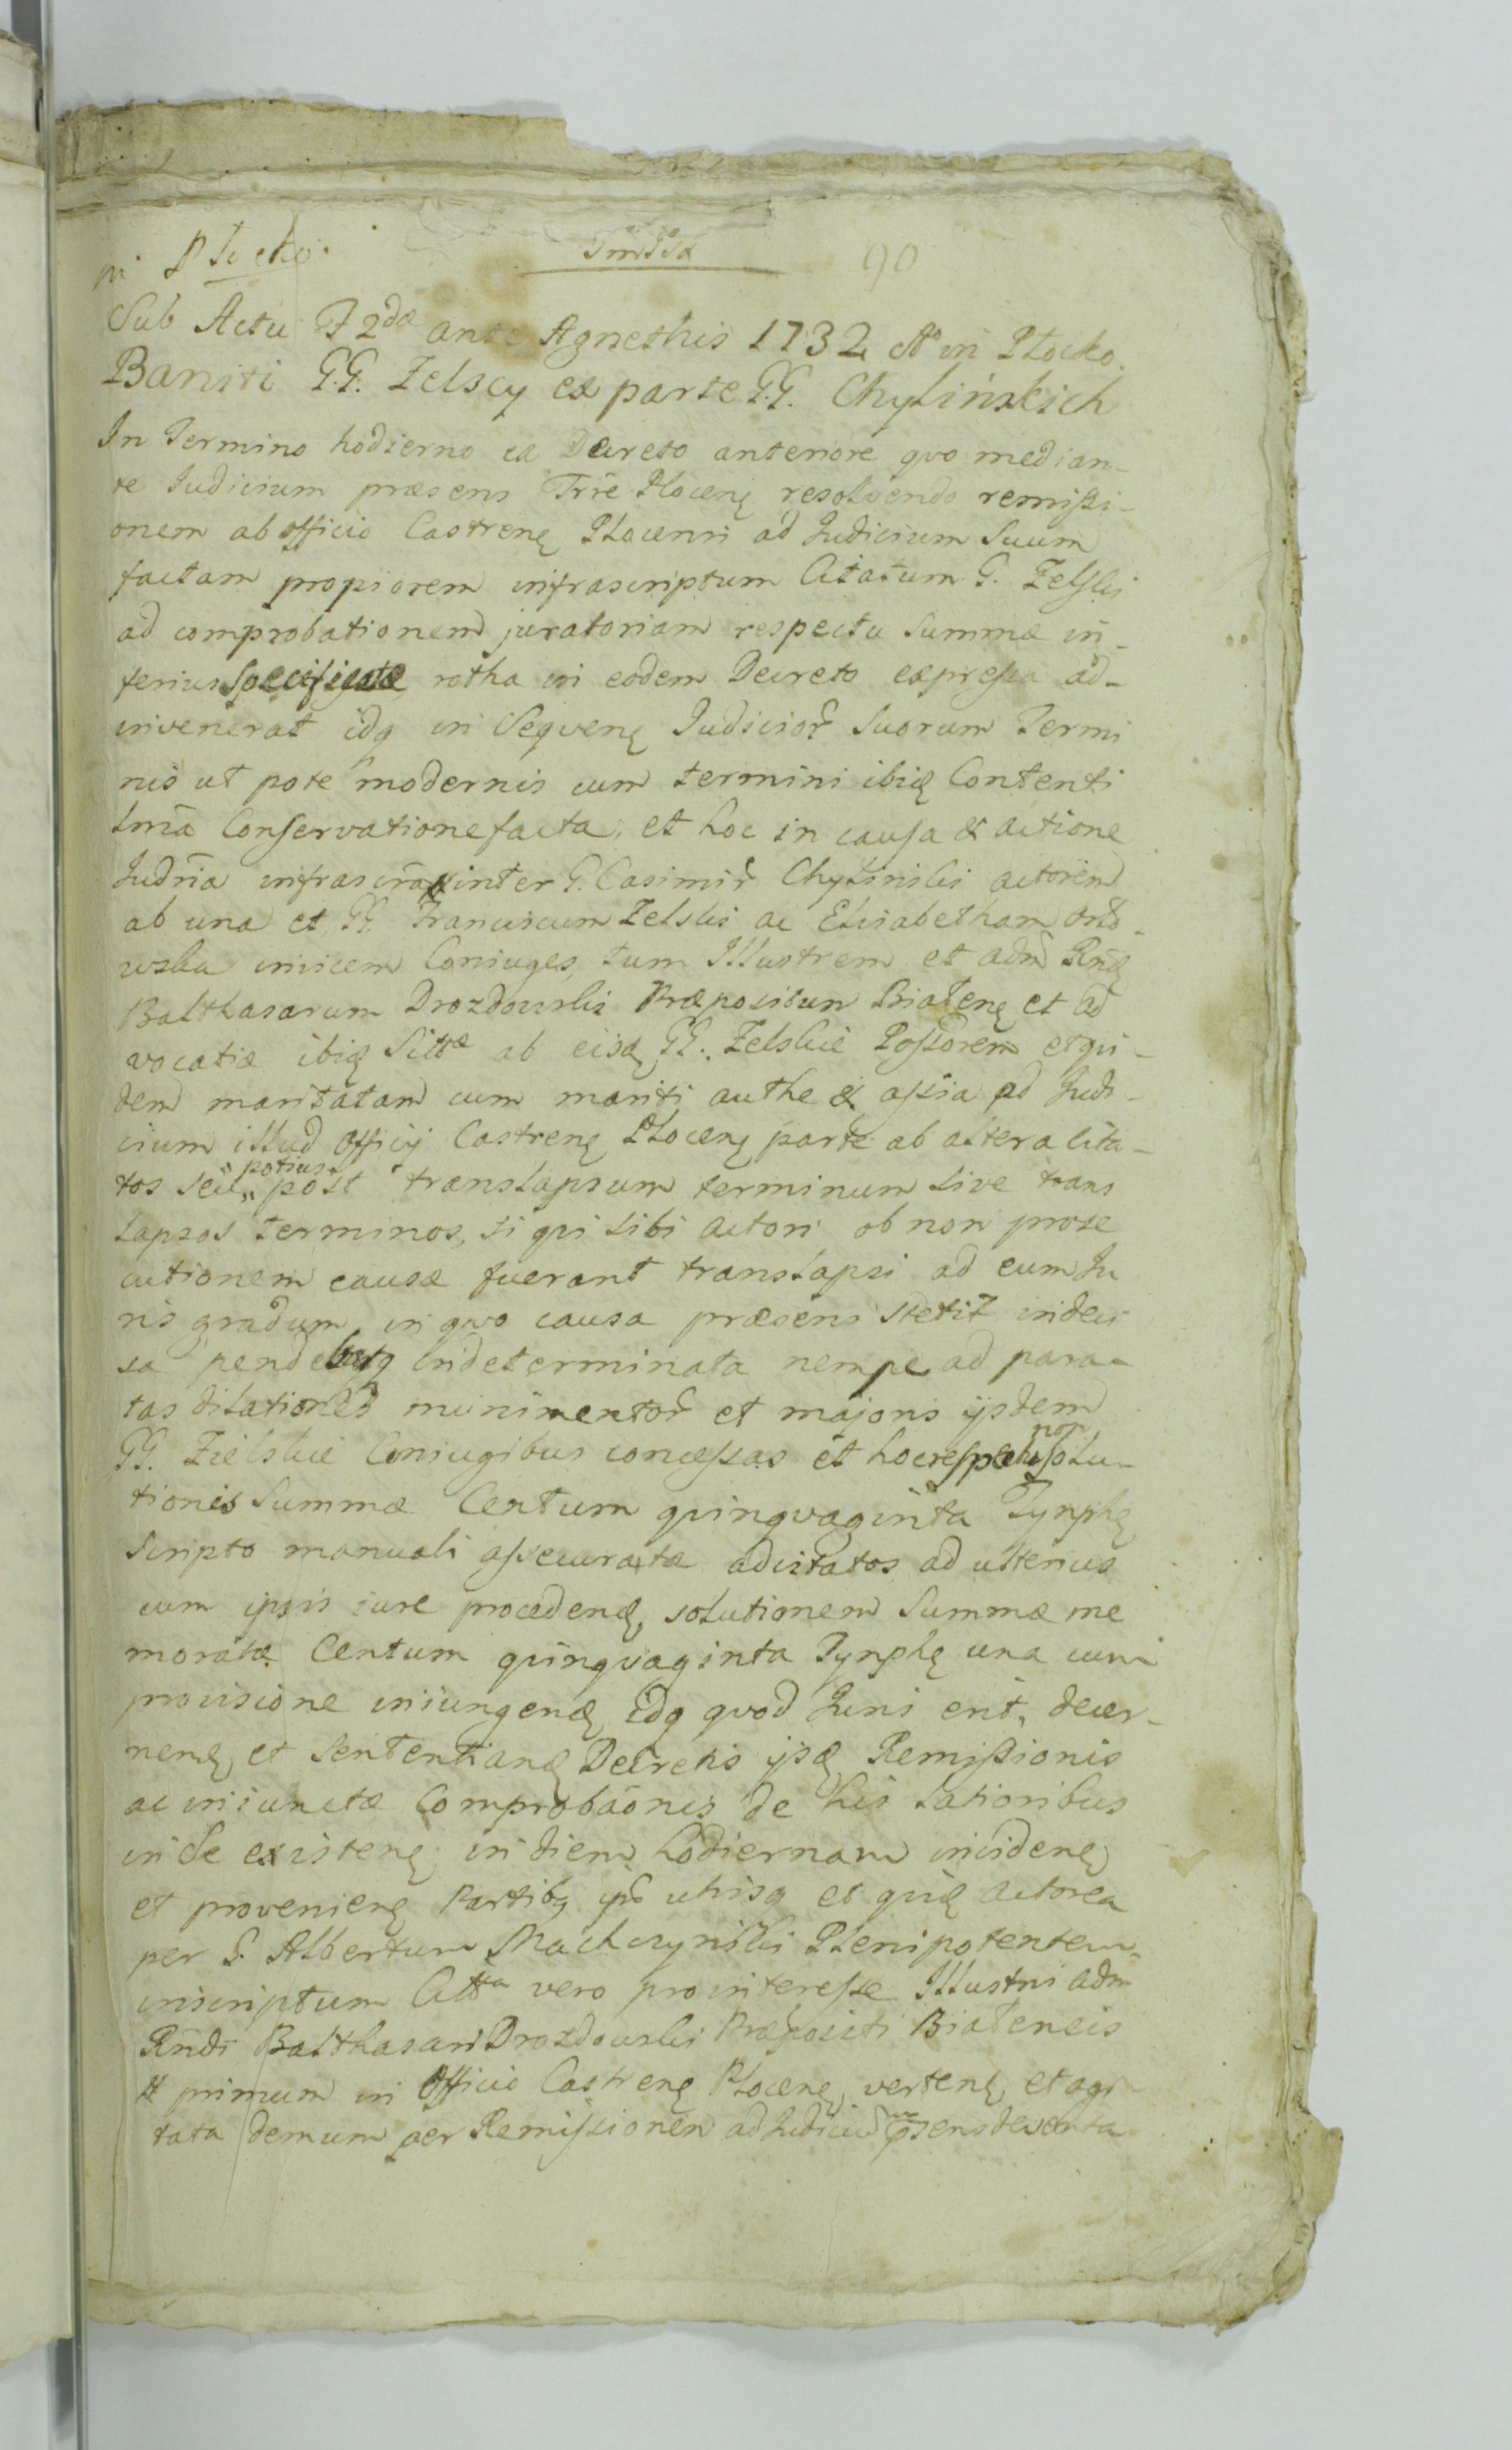 in Płocko.
90
Sub Actu F 2da ante Agnethis 1732 Ao in Płocko.
Baniti G.G. Zelscy ex parte G.G. Chylińskich
In Termino hodierno ex Decreto anteriore qvo median-
te Judicium præsens Trre Plocenę resolvendo remissi-
onem ab officio Castrenę Plocensi ad Judicium Suum
factam propiorem infrascriptum Citatum G. Zelski
ad comprobationem juratoriam respectu Summæ in-
ferius Specificatæ rotha in eodem Decreto expressa ad-
invenerat idq in Seqvenę Judicior Suorum Termi
nis ut pote modernis cum termini ibię Contenti
lmã Conservatione facta, et hoc in causa & actione
Judria infrascra inter G. Casimir Chyliński actorem
ab una et GG. Franciscum Zelski ac Elisabetham Orło-
wska invicem Coniuges, tum Illustrem et adm Rndę
Balthasarum Drozdowski Præpositum Białenę et ad
vocatiæ ibię Sittæ ab eisdę GG. Zelskie Possorem et qvi-
dem maritatam cum mariti authe & assia ad Judi-
cium illud Officij Castrenę Plocenę parte ab altera cita-
tos seu potius post translapsum terminum sive trans
lapsos terminos, si qvi sibi actori ob non prose
cutionem causæ fuerant translapsi ad eum Ju
ris gradum, in qvo causa præsens stetit indeci
sa pendebatq indeterminata nempe ad para-
tas dilationes munimentor et majoris ijsdem
GG. Zielskie Coniugibus concessas et hoc respectu non solu-
tionis Summæ Centum qvinqvaginta Tynphę
Scripto manuali assecuratæ ad citatos ad ulterius
cum ipsis iure procedendę, solutionem Summæ me
moratæ Centum qvinqvaginta Tynphę una cum
provisione iniungendę, idq qvod Juris erit, decer-
nendę, et Sententiandę Decretis ijsdę Remissionis
ac iniunctæ Comprobãonis de his latioribus
in se existenę in diem hodiernam incidenę
et provenienę Partibq ipis utrisq et qvidę actorea
per G. Albertum Machczyński Plenipotentem
inscriptum Citta vero pro interesse Illustri adm
Rndi Balthasari Drozdowski Præpositi Białensis
et primum in Officio Castrenę Plocenę, vertenę, et agi
tata demum per Remissionem ad Judicium præsens devoluta